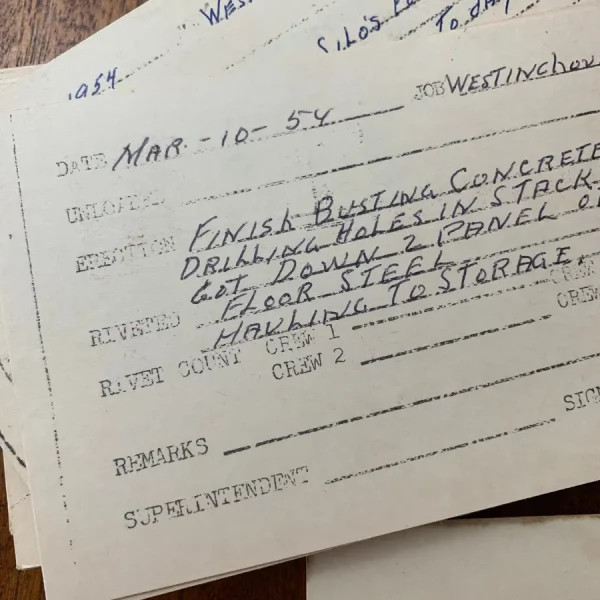 WES
SILO'S
TO
1954
DATE MAR.-10-54 JOB WESTINGHOU
UNLOADED
ERECTION FINISH BUSTING CONCRETE
DRILLING HOLES IN STACK
GOT DOWN 2 PANEL OF
FLOOR STEEL
RIVETED HAULING TO STORAGE.
RIVET COUNT CREW 1 CREW
CREW 2 CREW
REMARKS
SIG
SUPERINTENDENT